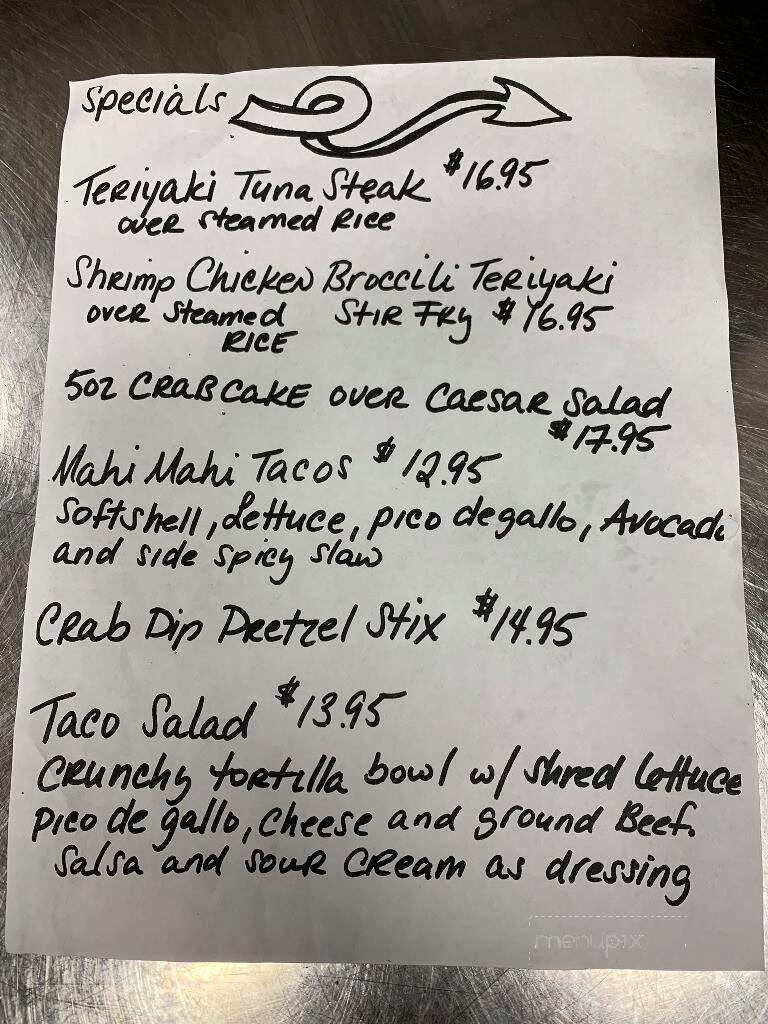 Specials
Teriyaki Tuna Steak $16.95
over steamed Rice
Shrimp Chicken Broccili Teriyaki
over steamed Stir Fry $16.95
Rice
5oz Crabcake over Caesar Salad
$17.95
Mahi Mahi Tacos $12.95
Softshell, Lettuce, pico degallo, Avocado
and side spicy slaw
Crab Dip Pretzel Stix $14.95
Taco Salad $13.95
Crunchy tortilla bowl w/ shred lettuce
Pico de gallo, Cheese and ground Beef.
Salsa and sour cream as dressing
menupix